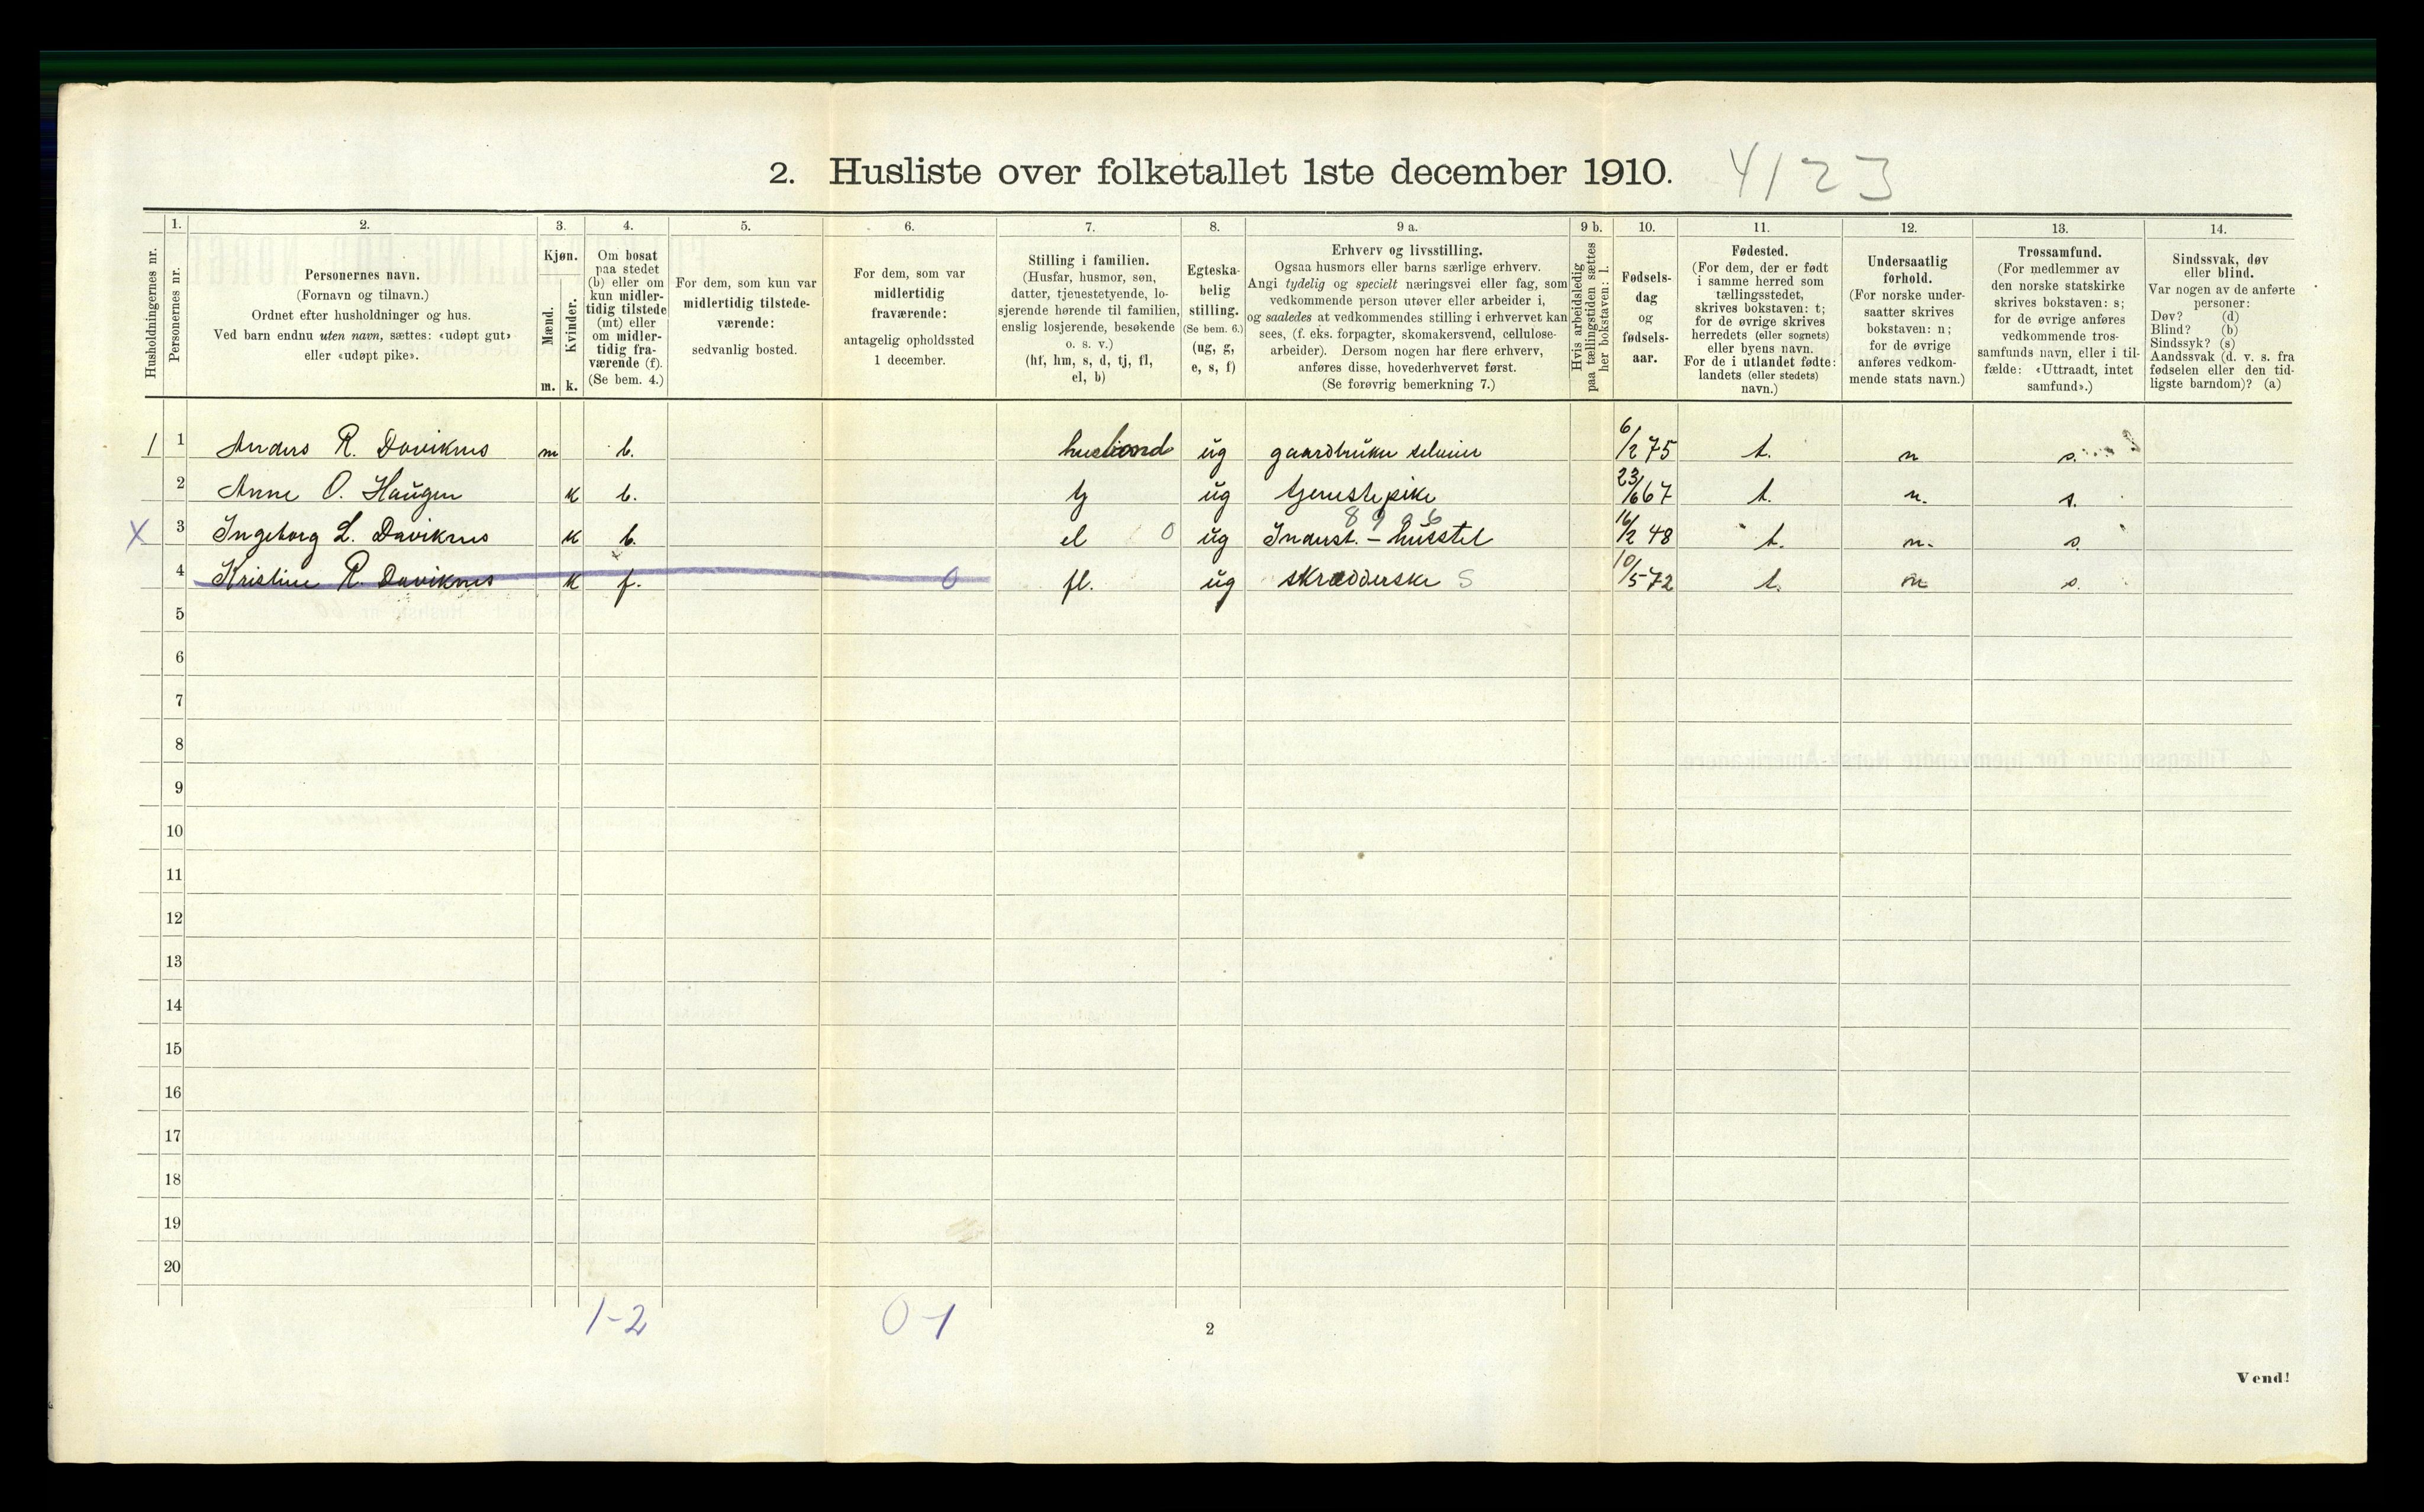 2. Husliste over folketallet 1ste december 1910. 4123
Husholdningernes nr.
1. Personernes nr.
2. Personernes navn.
(Fornavn og tilnavn.)
Ordnet efter husholdninger og hus.
Ved barn endnu uten navn, sættes: «udøpt gut»
eller «udøpt pike».
3. Kjøn.
Mænd. m.
Kvinder. k.
4. Om bosat
paa stedet
(b) eller om
kun midler-
tidig tilstede
(mt) eller
om midler-
tidig fra-
værende (f).
(Se bem. 4.)
5. For dem, som kun var
midlertidig tilstede-
værende:
sedvanlig bosted.
6. For dem, som var
midlertidig
fraværende:
antagelig opholdssted
1 december.
7. Stilling i familien.
(Husfar, husmor, søn,
datter, tjenestetyende, lo-
sjerende hørende til familien,
enslig losjerende, besøkende
o. s. v.)
(hf, hm, s, d, tj, fl,
el, b)
8. Egteska-
belig
stilling.
(Se bem. 6.)
(ug, g,
e, s, f)
9 a. Erhverv og livsstilling.
Ogsaa husmors eller barns særlige erhverv.
Angi tydelig og specielt næringsvei eller fag, som
vedkommende person utøver eller arbeider i,
og saaledes at vedkommendes stilling i erhvervet kan
sees, (f. eks. forpagter, skomakersvend, cellulose-
arbeider). Dersom nogen har flere erhverv,
anføres disse, hovederhvervet først.
(Se forøvrig bemerkning 7.)
9 b. Hvis arbeidsledig
paa tællingstiden sættes
her bokstaven: l.
10. Fødsels-
dag
og
fødsels-
aar.
11. Fødested.
(For dem, der er født
i samme herred som
tællingsstedet,
skrives bokstaven: t;
for de øvrige skrives
herredets (eller sognets)
eller byens navn.
For de i utlandet fødte:
landets (eller stedets)
navn.)
12. Undersaatlig
forhold.
(For norske under-
saatter skrives
bokstaven: n;
for de øvrige
anføres vedkom-
mende stats navn.)
13. Trossamfund.
(For medlemmer av
den norske statskirke
skrives bokstaven: s;
for de øvrige anføres
vedkommende tros-
samfunds navn, eller i til-
fælde: «Uttraadt, intet
samfund».)
14. Sindssvak, døv
eller blind.
Var nogen av de anførte
personer:
Døv? (d)
Blind? (b)
Sindssyk? (s)
Aandssvak (d. v. s. fra
fødselen eller den tid-
ligste barndom)? (a)
1 1 Anders R. Daviknes m b. husbond ug gaardbruker seleier 6/2 75 t. n s.
2 Anne O. Haugen k b. tj ug tjenestepike 23/6 67 t. n. s.
X 3 Ingeborg L. Daviknes k b. el 0 ug Indust. - husstel 16/2 48 t. n. s.
4 Kristine R. Daviknes k f. 0 fl. ug skrædderske S 10/5 72 t. n s.
5
6
7
8
9
10
11
12
13
14
15
16
17
18
19
20
1-2 0-1
2
Vend!